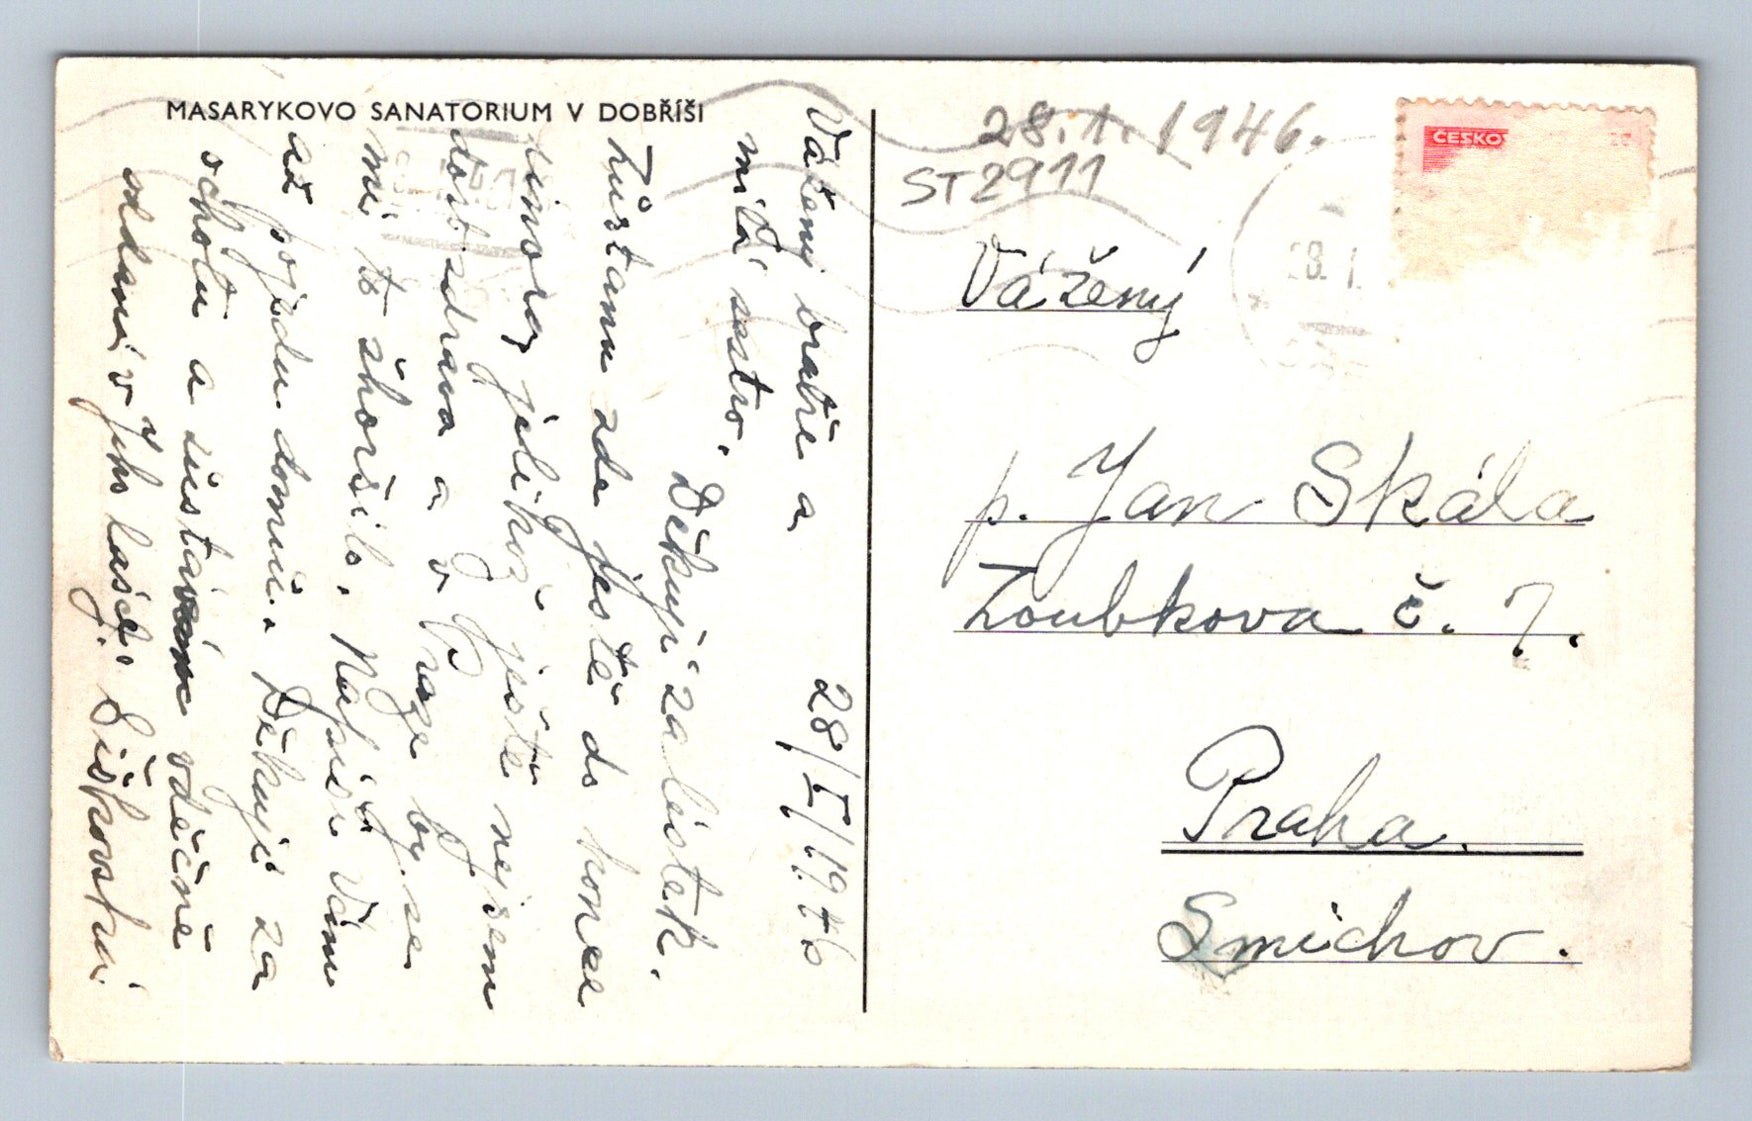 MASARYKOVO SANATORIUM V DOBŘÍŠI
28/I/1946
Vážený bratře a
milá sestro,
Děkuji za lístek,
Zůstanu zde ještě do konce
února, jelikož ještě nejsem
dost zdráva a v Praze by se
mi to zhoršilo. Napíši Vám
až pojedu domů. Děkuji za
ochotu a zůstávám vděčně
oddaní v Jeho lásce. Šiškovská
28.1.1946.
ST2911
ČESKO
28. I.
Vážený
p. Jan Skála
Zoubkova č. 7.
Praha.
Smíchov.